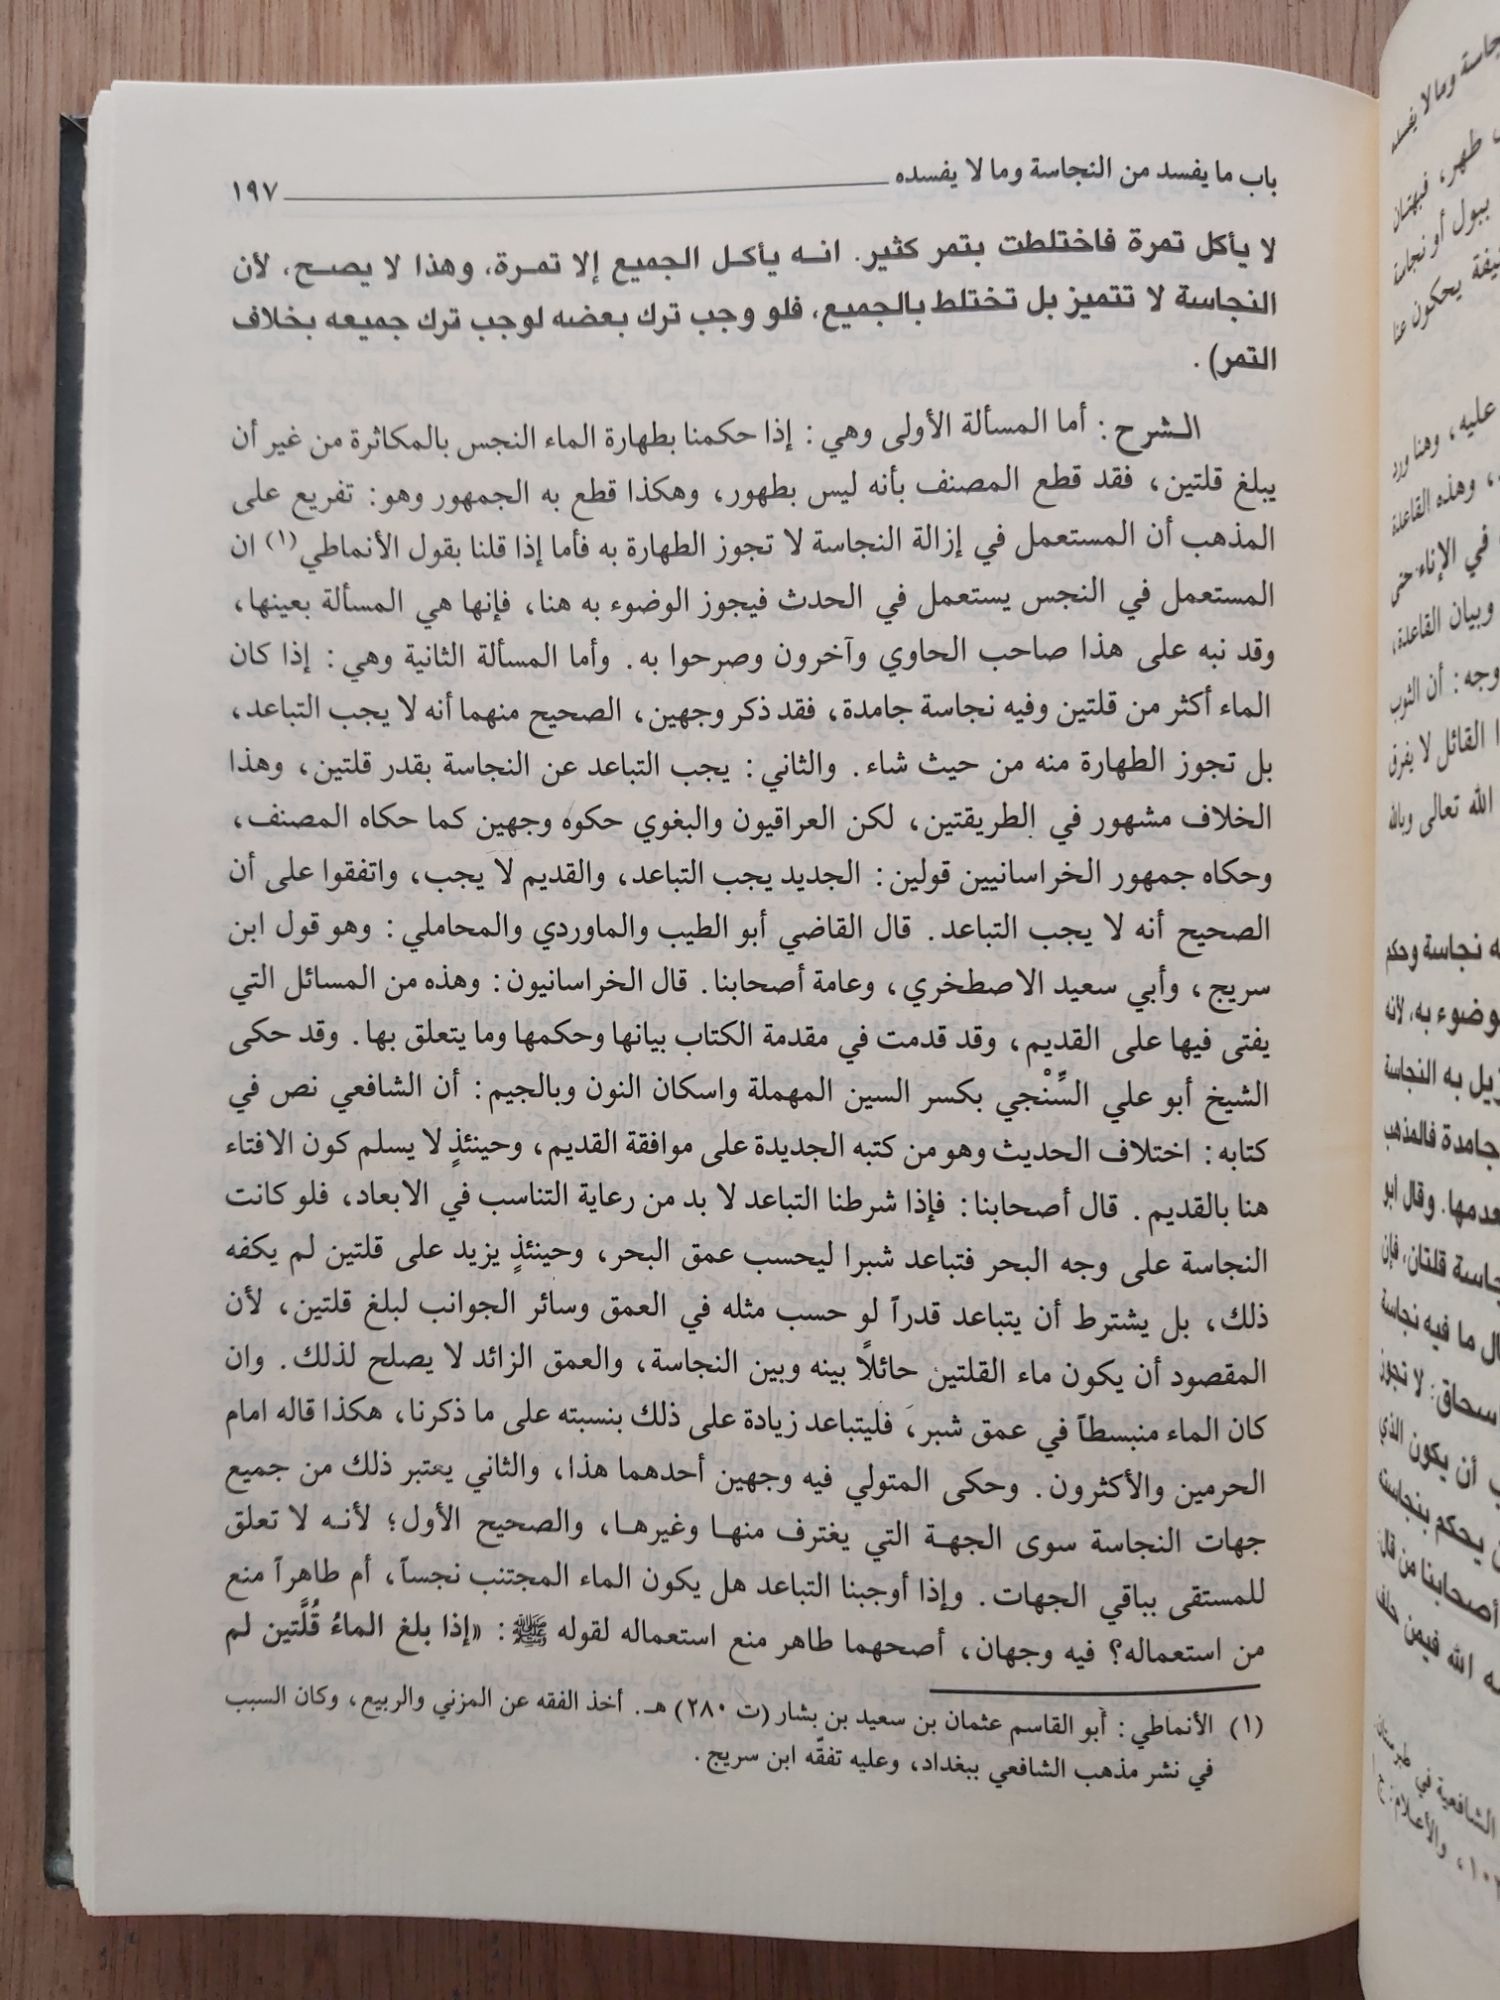 باب ما يفسد من النجاسة وما لا يفسده ١٩٧
لا يأكل تمرة فاختلطت بتمر كثير. انه يأكل الجميع إلا تمرة، وهذا لا يصح، لأن
النجاسة لا تتميز بل تختلط بالجميع، فلو وجب ترك بعضه لوجب ترك جميعه بخلاف
التمر).
الشرح: أما المسألة الأولى وهي: إذا حكمنا بطهارة الماء النجس بالمكاثرة من غير أن
يبلغ قلتين، فقد قطع المصنف بأنه ليس بطهور، وهكذا قطع به الجمهور وهو: تفريع على
المذهب أن المستعمل في إزالة النجاسة لا تجوز الطهارة به فأما إذا قلنا بقول الأنماطي(١) ان
المستعمل في النجس يستعمل في الحدث فيجوز الوضوء به هنا، فإنها هي المسألة بعينها،
وقد نبه على هذا صاحب الحاوي وآخرون وصرحوا به. وأما المسألة الثانية وهي: إذا كان
الماء أكثر من قلتين وفيه نجاسة جامدة، فقد ذكر وجهين، الصحيح منهما أنه لا يجب التباعد،
بل تجوز الطهارة منه من حيث شاء. والثاني: يجب التباعد عن النجاسة بقدر قلتين، وهذا
الخلاف مشهور في الطريقتين، لكن العراقيون والبغوي حكوه وجهين كما حكاه المصنف،
وحكاه جمهور الخراسانيين قولين: الجديد يجب التباعد، والقديم لا يجب، واتفقوا على أن
الصحيح أنه لا يجب التباعد. قال القاضي أبو الطيب والماوردي والمحاملي: وهو قول ابن
سريج، وأبي سعيد الاصطخري، وعامة أصحابنا. قال الخراسانيون: وهذه من المسائل التي
يفتى فيها على القديم، وقد قدمت في مقدمة الكتاب بيانها وحكمها وما يتعلق بها. وقد حكى
الشيخ أبو علي السِّنْجي بكسر السين المهملة واسكان النون وبالجيم: أن الشافعي نص في
كتابه: اختلاف الحديث وهو من كتبه الجديدة على موافقة القديم، وحينئذٍ لا يسلم كون الافتاء
هنا بالقديم. قال أصحابنا: فإذا شرطنا التباعد لا بد من رعاية التناسب في الابعاد، فلو كانت
النجاسة على وجه البحر فتباعد شبرا ليحسب عمق البحر، وحينئذٍ يزيد على قلتين لم يكفه
ذلك، بل يشترط أن يتباعد قدراً لو حسب مثله في العمق وسائر الجوانب لبلغ قلتين، لأن
المقصود أن يكون ماء القلتين حائلاً بينه وبين النجاسة، والعمق الزائد لا يصلح لذلك. وان
كان الماء منبسطاً في عمق شبر، فليتباعد زيادة على ذلك بنسبته على ما ذكرنا، هكذا قاله امام
الحرمين والأكثرون. وحكى المتولي فيه وجهين أحدهما هذا، والثاني يعتبر ذلك من جميع
جهات النجاسة سوى الجهة التي يغترف منها وغيرها، والصحيح الأول؛ لأنه لا تعلق
للمستقى بباقي الجهات. وإذا أوجبنا التباعد هل يكون الماء المجتنب نجساً، أم طاهراً منع
من استعماله؟ فيه وجهان، أصحهما طاهر منع استعماله لقوله ﷺ: «إذا بلغ الماءُ قُلَّتين لم
(١) الأنماطي: أبو القاسم عثمان بن سعيد بن بشار (ت ٢٨٠) هـ. أخذ الفقه عن المزني والربيع، وكان السبب
في نشر مذهب الشافعي ببغداد، وعليه تفقَّه ابن سريج.
وما لا يفسده
طهر، فبهتان
ببول أو نجاسة
يحكون عنا
عليه، وهنا ورد
وهذه القاعدة
في الإناء حتى
وبيان القاعدة،
وجه: أن الثوب
القائل لا يفرق
الله تعالى وبالله
نجاسة وحكم
به، لأنه
به النجاسة
جامدة فالمذهب
وقال ابو
قلتان، فإن
ما فيه نجاسة
لا تجوز
أن يكون الذي
يحكم بنجاسة
أصحابنا من قال
الله فيمن حلف
الشافعية في طبرستان
والأعلام: